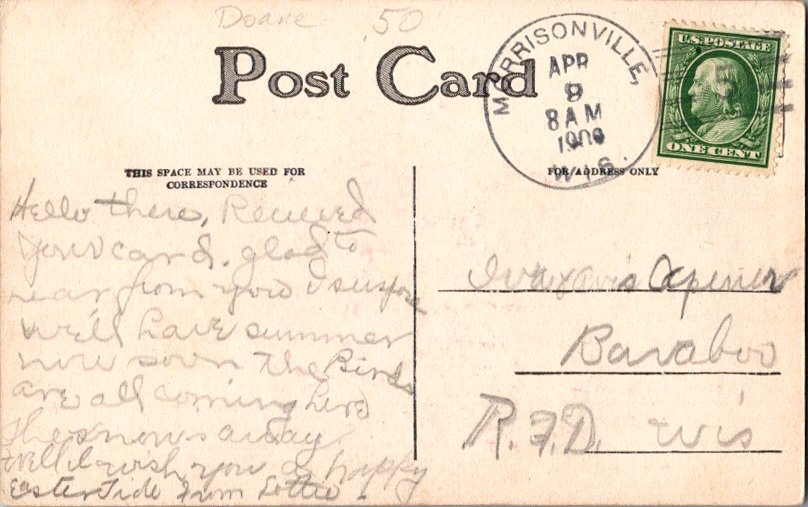 Doane '50
Post Card
MORRISONVILLE,
APR
9
8 AM
1909
WIS.
U.S. POSTAGE
ONE CENT
THIS SPACE MAY BE USED FOR
CORRESPONDENCE
FOR ADDRESS ONLY
Hello there, Recieved
your card. glad to
hear from you I supose
we'll have summer
now soon the Birds
are all coming here
the snows away
well I wish you a happy
Easter Tide from Lottie.
Iva
Baraboo
R.F.D. Wis